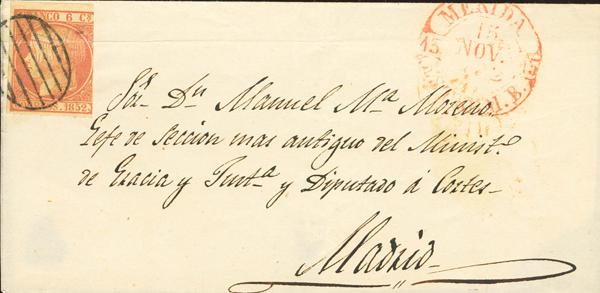 FRANCO 6 Cs
1852.
MERIDA
15
NOV.
Sor. Dn. Manuel Ma. Moreno.
Gefe de Seccion mas antiguo del Ministo.
de Gracia y Justa. y Diputado á Cortes
Madrid